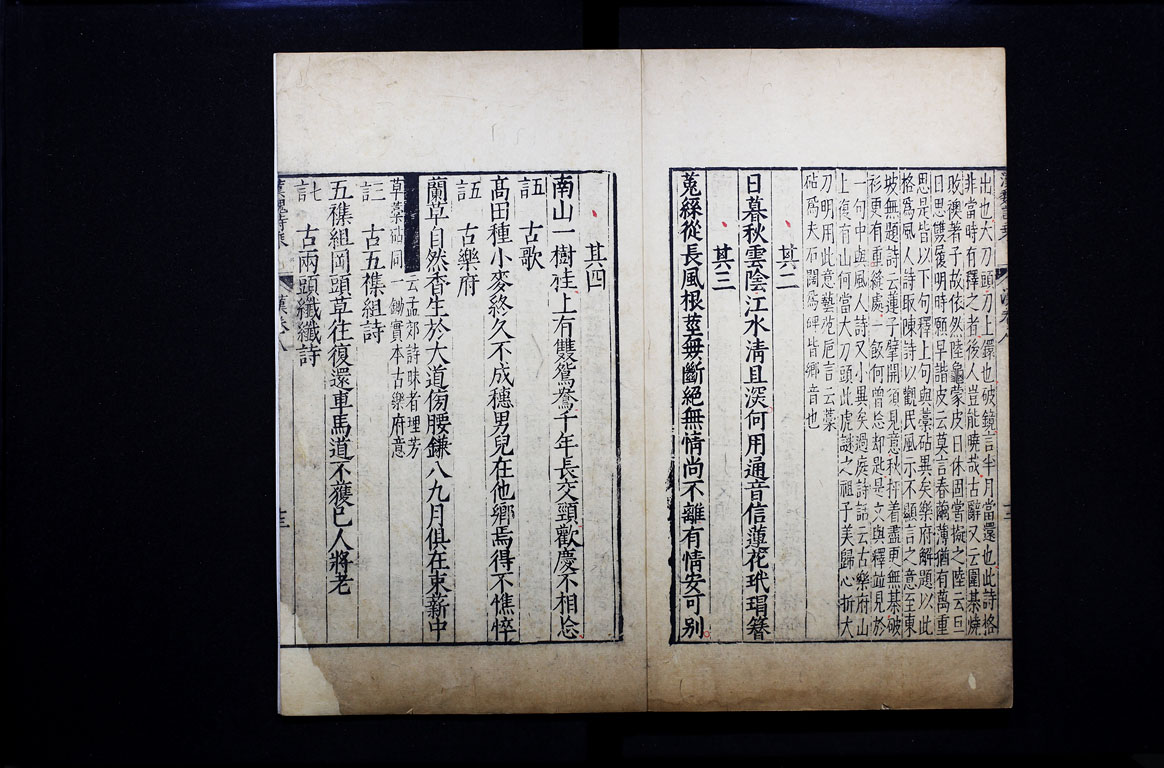 出也大刀頭刀上鐶也破鏡言半月當還也此詩格
非當時有釋之者後人豈能曉哉古辭又云圍棊燒
敗襖著子故依然陸龜蒙皮日休固嘗擬之陸云旦
日思雙履明時願早諧皮云莫言春繭薄猶有萬重
思是皆以下句釋上句與藁砧異矣樂府解題以此
格為風人詩取陳詩以觀民風示不顯言之意至東
坡無題詩云蓮子擘開須見意秋枰着盡更無棊破
衫更有重縫處一飯何曾忘却匙是文與釋並見於
一句中與風人詩又小異矣過庭詩話云古樂府山
上復有山何當大刀頭此虎謎之祖子美歸心折大
刀明用此意藝苑巵言云藁
砧為夫石闕為碑皆鄉音也
其二
日暮秋雲陰江水清且深何用通音信蓮花玳瑁簪
其三
菟絲從長風根莖無斷絕無情尚不離有情安可别
其四
南山一樹桂上有雙鴛鴦千年長交頸歡慶不相忘
五 古歌
高田種小麥終久不成穗男兒在他鄉焉得不憔悴
五 古樂府
蘭草自然香生於大道傍腰鎌八九月俱在束薪中
云孟郊詩昧者理芳
草藁砧同一鋤實本古樂府意
三 古五襍組詩
五襍組岡頭草往復還車馬道不獲已人將老
古兩頭纖纖詩
漢卷八